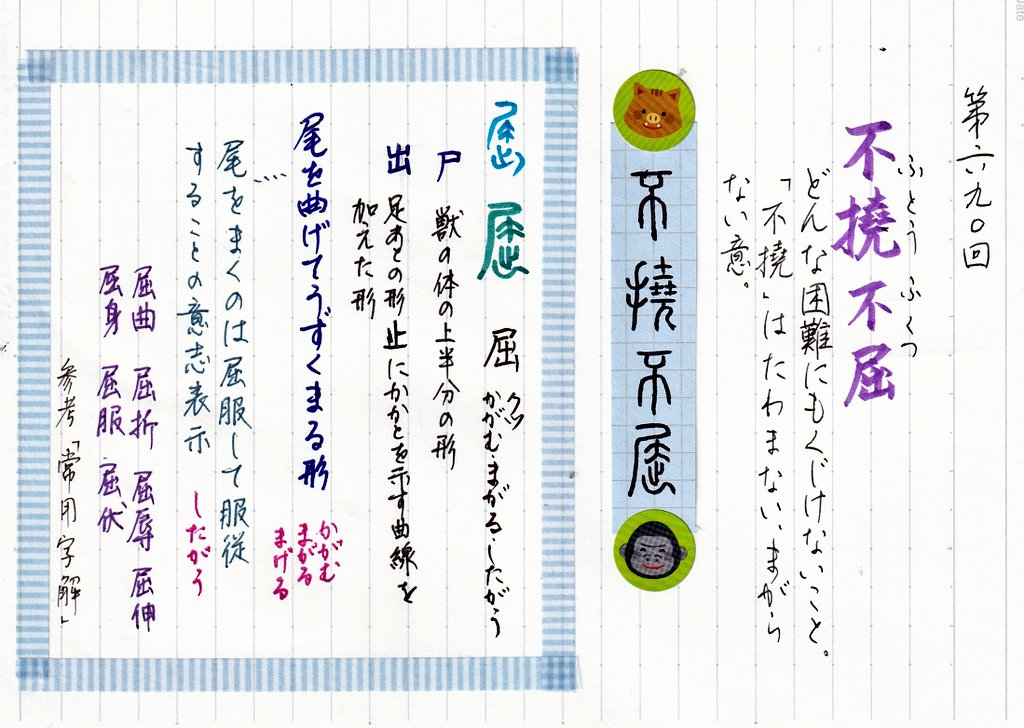 第六九〇回
ふとうふくつ
不撓不屈
どんな困難にもくじけないこと。
「不撓」はたわまない、まがら
ない意。
不撓不屈
屈 クツ かがむ・まがる・したがう
尸 獣の体の上半分の形
出 足あとの形 止にかかとを示す曲線を
加えた形
尾を曲げてうずくまる形
かがむ
まがる
まげる
尾をまくのは屈服して服従
することの意志表示
したがう
屈曲 屈折 屈辱 屈伸
屈身 屈服 屈伏
参考「常用字解」